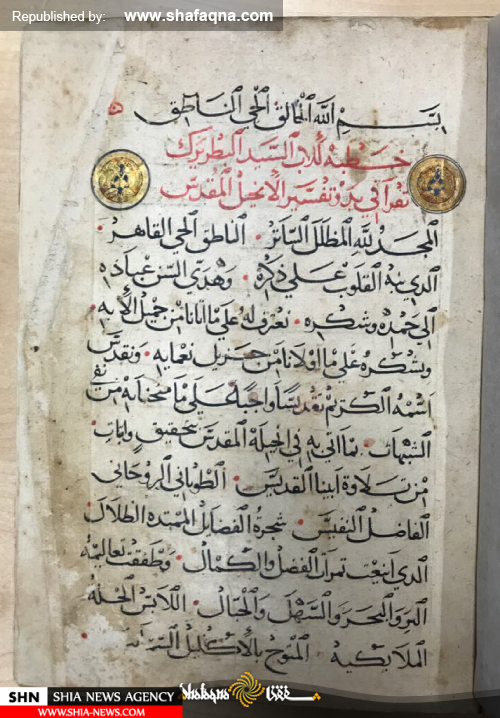 Republished by: www.shafaqna.com
بسم الله الخالق الحي الناطق
خطبة للاب السيد البطريرك
تقرا في بدو تفسير الانجيل المقدس
المجد لله المظلل الساتر الناطق الحي القاهر
الذي نبه القلوب علي ذكره وهدي السن عباده
الي حمده وشكره نعترف له علي ما اتانا من جميل الايه
ونشكره علي ما اولانا من جزيل نعمايه ونقدس
اسمه الكريم تقديسا واجبا علي ما منحنا به من نفي
الشبهات بما اتي به في انجيله المقدس بتحقيق واثبات
من تلاوة ابينا القديس الطوباني الروحاني
الفاضل النفيس شجرة الفضايل الممتده الظلال
الذي اينعت ثمرات الفضل والكمال وطفقت تعاليمه
البر والبحر والسهل والجبال اللابس الحله
الملايكيه المتوج بالاكليل
SHN SHIA NEWS AGENCY Shafaqna شفقنا
WWW.SHIA-NEWS.COM